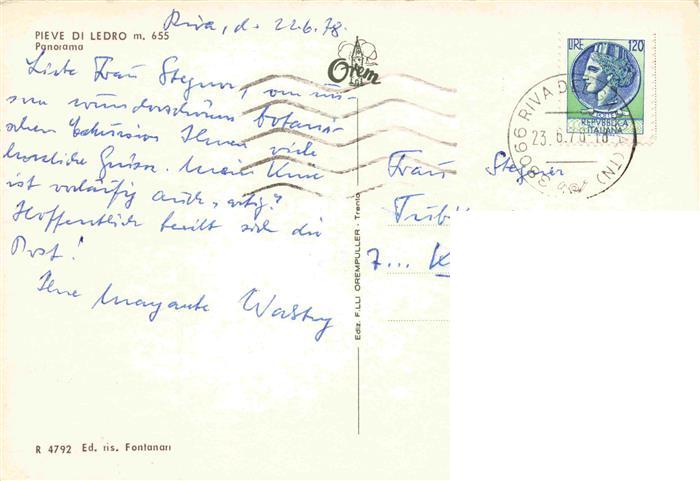 Riva, d. 22.6.78.
PIEVE DI LEDRO m. 655
Panorama
Orem
LIRE 120
POSTE
REPVBBLICA
ITALIANA
38066 RIVA DEL
(TN)
23.6.78
Liebe Frau Stegner, von un-
serer wunderschönen botani-
schen Exkursion Ihnen viele
herzliche Grüsse. Mein Knie
ist vorläufig auch "artig".
Hoffentlich beeilt sich die
Post!
Ihre Margarete
Frau Stegner
Tübi
7... K
Ediz. F.LLI OREMPULLER - Trento
R 4792 Ed. ris. Fontanari